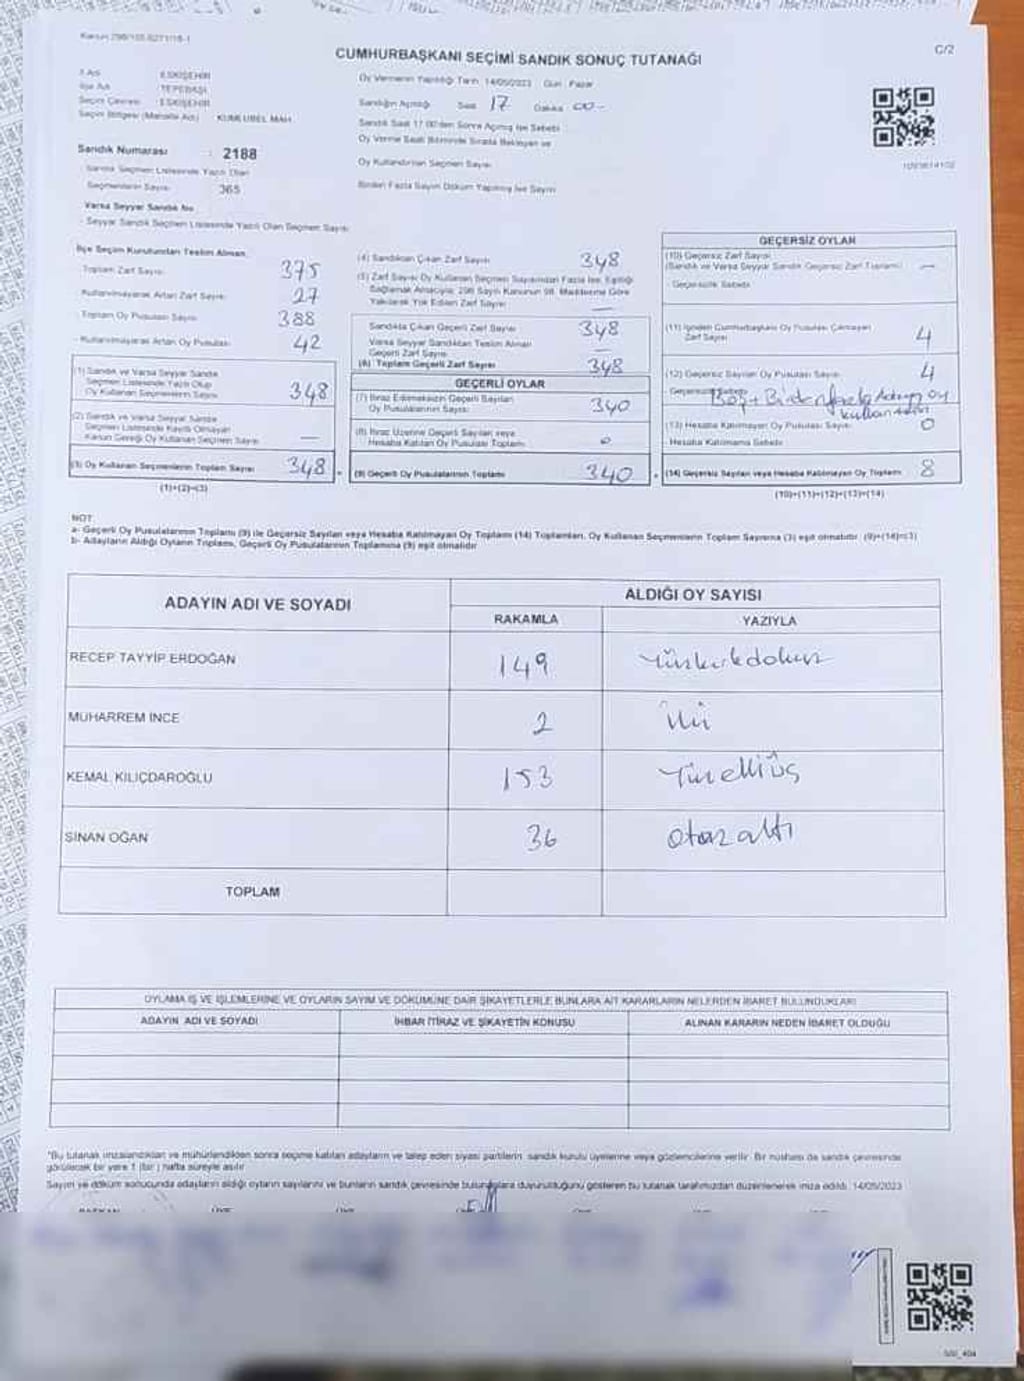 Kanun 298/105-6271/18-1
CUMHURBAŞKANI SEÇİMİ SANDIK SONUÇ TUTANAĞI
C/2
İl Adı : ESKİŞEHİR
İlçe Adı : TEPEBAŞI
Seçim Çevresi : ESKİŞEHİR
Seçim Bölgesi (Mahalle Adı) : KUMLUBEL MAH.
Sandık Numarası : 2188
Sandık Seçmen Listesinde Yazılı Olan
Seçmenlerin Sayısı 365
Varsa Seyyar Sandık No
- Seyyar Sandık Seçmen Listesinde Yazılı Olan Seçmen Sayısı
Oy Vermenin Yapıldığı Tarih 14/05/2023 Gün : Pazar
Sandığın Açıldığı Saat 17 Dakika 00-
Sandık Saat 17:00'den Sonra Açılmış İse Sebebi
Oy Verme Saati Bitiminde Sırada Bekleyen ve
Oy Kullandırılan Seçmen Sayısı
Birden Fazla Sayım Döküm Yapılmış İse Sayısı
İlçe Seçim Kurulundan Teslim Alınan
- Toplam Zarf Sayısı 375
- Kullanılmayarak Artan Zarf Sayısı 27
- Toplam Oy Pusulası Sayısı 388
- Kullanılmayarak Artan Oy Pusulası 42
(1) Sandık ve Varsa Seyyar Sandık
Seçmen Listesinde Yazılı Olup
Oy Kullanan Seçmenlerin Sayısı 348
(2) Sandık ve Varsa Seyyar Sandık
Seçmen Listesinde Kayıtlı Olmayan
Kanun Gereği Oy Kullanan Seçmen Sayısı —
(3) Oy Kullanan Seçmenlerin Toplam Sayısı 348
(1)+(2)=(3)
(4) Sandıktan Çıkan Zarf Sayısı 348
(5) Zarf Sayısı Oy Kullanan Seçmen Sayısından Fazla İse, Eşitliği
Sağlamak Amacıyla, 298 Sayılı Kanunun 98. Maddesine Göre
Yakılarak Yok Edilen Zarf Sayısı —
Sandıkta Çıkan Geçerli Zarf Sayısı 348
Varsa Seyyar Sandıktan Teslim Alınan
Geçerli Zarf Sayısı —
(6) Toplam Geçerli Zarf Sayısı 348
GEÇERLİ OYLAR
(7) İtiraz Edilmeksizin Geçerli Sayılan
Oy Pusulalarının Sayısı 340
(8) İtiraz Üzerine Geçerli Sayılan veya
Hesaba Katılan Oy Pusulası Toplamı 0
(9) Geçerli Oy Pusulalarının Toplamı 340
GEÇERSİZ OYLAR
(10) Geçersiz Zarf Sayısı
(Sandık ve Varsa Seyyar Sandık Geçersiz Zarf Toplamı) —
- Geçersizlik Sebebi
(11) İçinden Cumhurbaşkanı Oy Pusulası Çıkmayan
Zarf Sayısı 4
(12) Geçersiz Sayılan Oy Pusulası Sayısı 4
Geçersizlik Sebebi Boş + Birden fazla Adaya oy
kullanılan
(13) Hesaba Katılmayan Oy Pusulası Sayısı 0
- Hesaba Katılmama Sebebi
(14) Geçersiz Sayılan veya Hesaba Katılmayan Oy Toplamı 8
(10)+(11)+(12)+(13)=(14)
NOT:
a- Geçerli Oy Pusulalarının Toplamı (9) ile Geçersiz Sayılan veya Hesaba Katılmayan Oy Toplamı (14) Toplamları, Oy Kullanan Seçmenlerin Toplam Sayısına (3) eşit olmalıdır. (9)+(14)=(3)
b- Adayların Aldığı Oyların Toplamı, Geçerli Oy Pusulalarının Toplamına (9) eşit olmalıdır
ADAYIN ADI VE SOYADI ALDIĞI OY SAYISI
RAKAMLA YAZIYLA
RECEP TAYYİP ERDOĞAN 149 Yüzkırkdokuz
MUHARREM İNCE 2 İki
KEMAL KILIÇDAROĞLU 153 Yüzelliüç
SİNAN OĞAN 36 otuzaltı
TOPLAM
OYLAMA İŞ VE İŞLEMLERİNE VE OYLARIN SAYIM VE DÖKÜMÜNE DAİR ŞİKAYETLERLE BUNLARA AİT KARARLARIN NELERDEN İBARET BULUNDUKLARI
ADAYIN ADI VE SOYADI İHBAR İTİRAZ VE ŞİKAYETİN KONUSU ALINAN KARARIN NEDEN İBARET OLDUĞU
*Bu tutanak imzalandıktan ve mühürlendikten sonra seçime katılan adayların ve talep eden siyasi partilerin sandık kurulu üyelerine veya gözlemcilerine verilir. Bir nüshası da sandık çevresinde
görülecek bir yere 1 (bir) hafta süreyle asılır.
Sayım ve döküm sonucunda adayların aldığı oyların sayılarını ve bunların sandık çevresinde bulunanlara duyurulduğunu gösteren bu tutanak tarafımızdan düzenlenerek imza edildi. 14/05/2023
BAŞKAN ÜYE ÜYE ÜYE ÜYE ÜYE